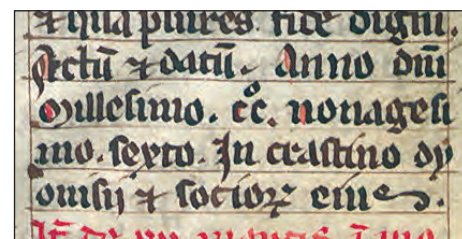 ⁊ alii plures. fide digni.
Actū ⁊ datū. Anno dn̄i
Millesimo. c̊c. nonagesi
mo. sexto. In crastino dy
onisij ⁊ socioꝝ eius.